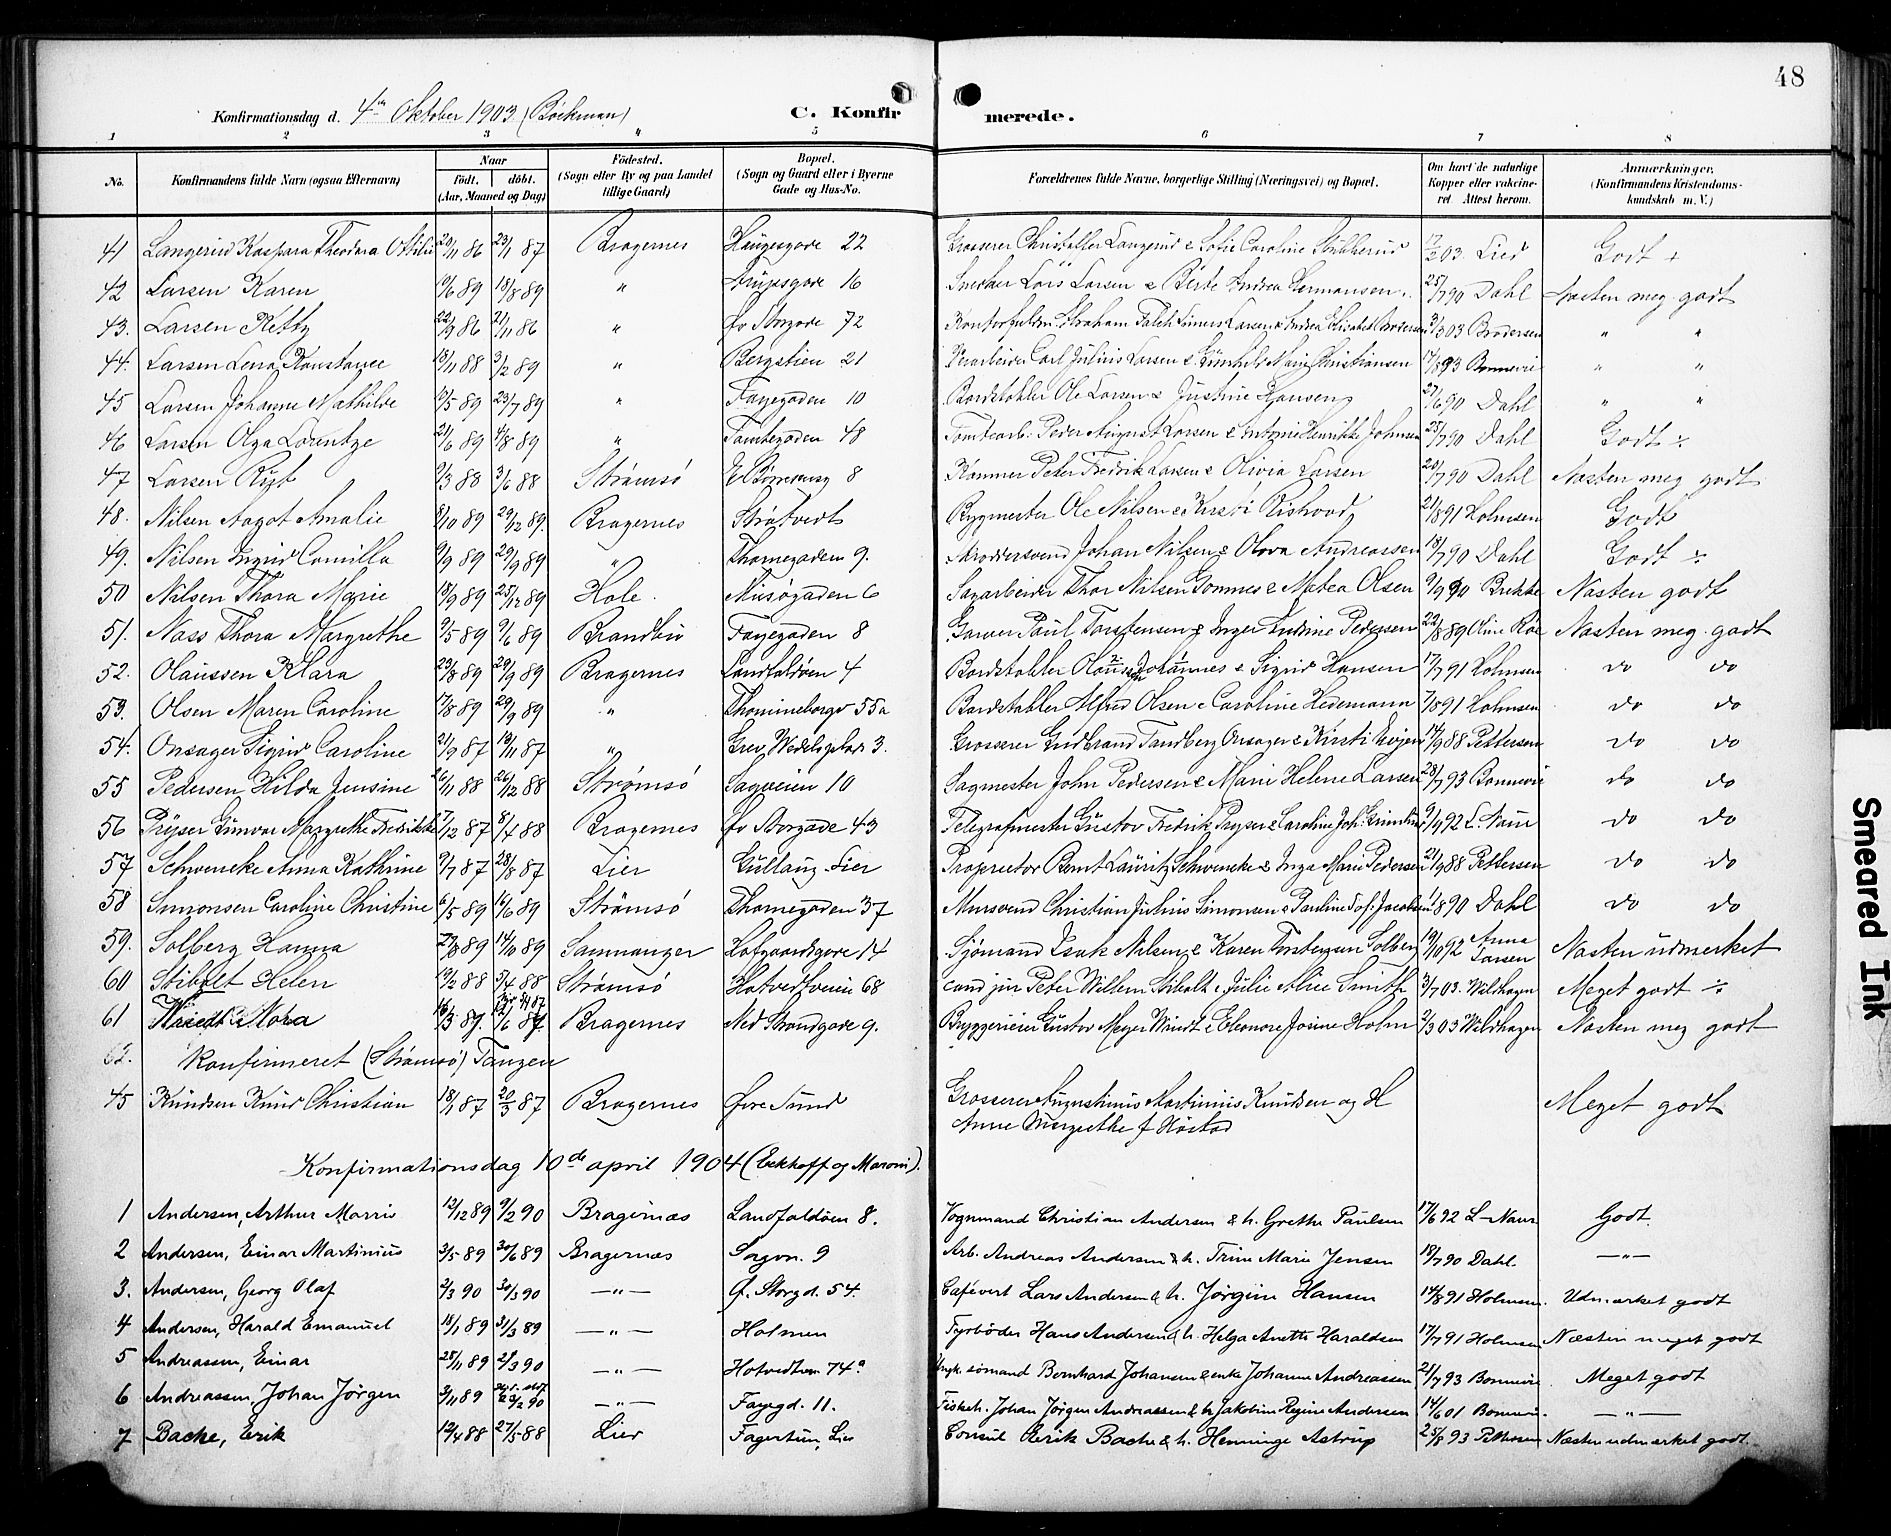 48
Konfirmationsdag d. 4de Oktober 1903 (Böckman) C. Konfirmerede.
1 2 3 " 5 6 7 8
No. Konfirmandens fulde Navn (ogsaa Efternavn) Naar födt. döbt. (Aar, Maaned og Dag) Födested. (Sogn eller By og paa Landet tillige Gaard) Bopæl. (Sogn og Gaard eller i Byerne Gade og Hus-No. Forældrenes fulde Navne, borgerlige Stilling (Næringsvei) og Bopæl. Om havt de naturlige Kopper eller vakcineret. Attest herom. Anmærkninger. (Konfirmandens Kristendomskundskab m. V.)
41 Langerud Kaspara Theodora 20/11 86 23/1 87 Bragernes Haugesgade 22 Grosserer Christoffer Langerud & Sofie Caroline Stubberud 03. Lied Godt +
42 Larsen Karen 10/6 89 18/8 89 " 16 Snedker Larsen & Andrea Hermansen 25/7 90 Dahl Næsten meg godt
43. Larsen Ketty 22/9 86 21/11 86 " Øv Storgade 72 Larsen & Andrea Elisabet Brodersen 3/3 03 Brodersen " "
44. Larsen Lena Konstance 18/11 88 3/2 89 " Bergstien 21 Carl Julius Larsen & Gunhild Marie Christiansen 17/8 93 Bonnevie " "
45 Larsen Johanne Mathilde 10/5 89 23/7 89 " Fayegaden 10 Bordstabler Ole Larsen & Justine Hansen 27/6 90 Dahl " "
46 Larsen Olga Lorentze 21/6 89 4/8 89 " Tomtegaden 48 Tomtearb. Peder August Larsen & Antonie Henrikke Johnsen 25/7 90 Dahl Godt ÷
47 Larsen Rut 9/3 88 3/6 88 Strømsö 8 Peter Fredrik Larsen & Olivia Larsen 20/7 90 Dahl Næsten meg godt
48. Nilsen Aagot Amalie 8/10 89 29/12 89. Bragernes Strøtvedt Bygmester Ole Nilsen & Kirsti 21/8 91 Holmsen Godt
49. Nilsen Ingrid Camilla 9/9 89 29/9 89 " Thornegaden 9. Skreddersvend Johan Nilsen & Olava Andreassen 18/7 90 Dahl Godt ÷
50 Nilsen Thora Marie 18/9 89 25/12 89 Hole. Musögaden 6 Sagarbeider Thor Nilsen Gomnes & Matea Olsen 9/9 90 Brekke Næsten godt
51. Næss Thora Margrethe 9/5 89 9/6 89 Brandbu Fayegaden 8 Garver Paul Torstensen & Inger Andrine Pedersen 22/8 89 Oline Roe Næsten meg. godt
52. Olaussen Klara 23/8 89 29/9 89 Bragernes Landfaldöen 4 Bordstabler Olaussen Johannes & Sigrid Hansen 17/7 91 Holmsen do do
53. Olsen Maren Caroline 17/8 89 29/9 89 " Thomineborgv 55a Bordstabler Alfred Olsen & Caroline Hedemann 7/8 91 Holmsen do do
54. Onsager Sigrid Caroline 21/9 87 13/11 87 " Grev Wedelsplads 3. Grosserer Gudbrand Tandberg Onsager & Kirsti Evjen 17/9 88 Pettersen do do
55 Pedersen Hilda Jensine 26/11 88 26/12 88 Strømsö Sagveien 10 Sagmester John Pedersen & Marie Helene Larsen 28/7 93 Bonnevie do do
56 Pryser Gunvor Margrethe Fredrikke 7/12 87 8/4 88 Bragernes Øv Storgade 43 Telegrafmester Gustov Fredrik Pryser & Caroline Joh. 9/9 92 L. Naur do do
57 Schwencke Anna Kathrine 9/7 87 28/8 87 Lier Gullaug Lier Proprietær Bernt Lauritz Schwencke & Inga Marie Pedersen 21/9 88 Pettersen do do
58 Simonsen Caroline Christine 6/5 89 16/6 89 Strømsö Thornegaden 37 Mursvend Christian Julius Simonsen & Pauline Sof. Jacobsen 1/8 90 Dahl do do
59. Solberg Hanna 27/8 89 14/10 89 Sammanger Hofgaardsgade 14 Sjømand Isak Nilsen & Karen Torbergsen Solberg 19/10 92 Anna Larsen Næsten udmerket
60 Stibolt Helen 19/2 88 5/4 88 Strømsö Hotvedtveien 68 cand jur Peter Willem Stibolt & Julie Alice Smith 3/7 03. Wildhagen Meget godt ÷
61 Nora 16/3 87. 12/6 87 Bragernes Ned Strandgade 9. Bryggerieier Gustov Meyer Wandt & Eleonore Josine Holm 2/3 03 Wildhagen Næsten meg godt
62. Konfirmeret (Strømsö) Tangen
45 Knudsen Knud Christian 18/1 87 20/3 87 Bragernes Øvre Sund Grosserer Augustinus Martinius Knudsen og H Anne Margrethe f Høstad Meget godt
Konfirmationsdag 10de april 1904 (Eckhoff og Maroni).
1 Andersen, Arthur Marius 12/12 89 9/2 90 Bragernæs Landfaldöen 8. Vognmand Christian Andersen & h. Grethe Paulsen 17/6 92 L. Naur Godt.
2 Andersen, Einar Martinius 3/5 89 30/6 89 Bragernæs Sagv. 9 Arb. Andreas Andersen & h. Trine Marie Jensen 18/7 90 Dahl. —"—
3. Andersen, Georg Olaf 2/3 90 30/3 90 —"— Ø. Storgd. 54. Cafévert Lars Andersen & h. Jörgine Hansen 14/8 91 Holmsen. Udmærket godt
4 Andersen, Harald Emanuel 18/1 89 31/3 89 —"— Holmen Fyrbøder Hans Andersen & h. Helga Anette Haraldsen 17/7 91 Holmsen Næsten meget godt
5 Andreassen, Einar 28/11 89 2/3 90 —"— Hotvedtven 74a Ungk. sömand Bernhard Johansen & enke Johanne Andreassen 21/7 93 Bonnevie Meget godt
6 Andreassen, Johan Jörgen 3/11 89 23/2 90 —"— Fayegd. 11. Fiskeh. Johan Jörgen Andreassen & h. Jakobine Regine Andersen 14/6 01 Bonnevie. —"—
7 Backe, Erik 12/4 88 27/5 88 Lier Fagertun, Lier Consul Erik Backe & h. Henninge Astrup 25/8 93 Pettersen Næsten udmærket godt.
Smeared Ink